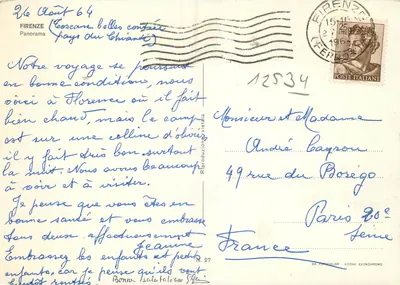 26 Août 64
FIRENZE
Panorama
(Toscane belles contrée
pays du Chianti)
Notre voyage se poursuit
en bonne condition, nous
voici à Florence où il fait
bien chaud, mais le camp
est sur une colline d'olivier
il y fait très bon surtout
la nuit. Nous avons beaucoup
à voir et à visiter.
Je pense que vous êtes en
bonne santé et vous embrasse
tous deux affectueusement
Jeanne
Embrassez les enfants et petits
enfants, car je pense qu'ils vont
FIRENZE
POSTE ITALIANE
12534
Monsieur et Madame
André
49 rue du Borégo
Paris 20e
Seine
France